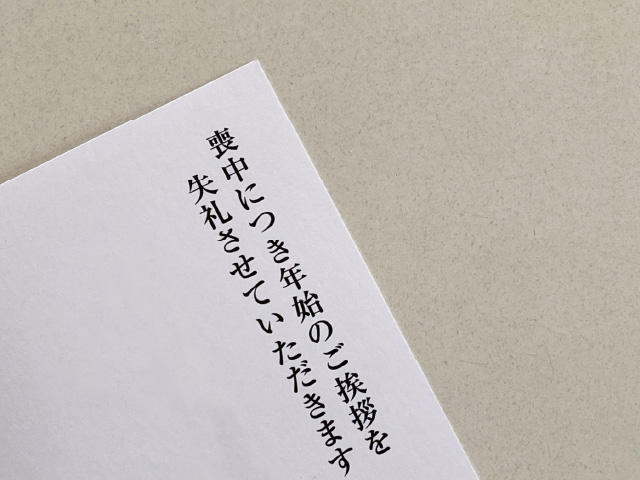 喪中につき年始のご挨拶を
失礼させていただきます